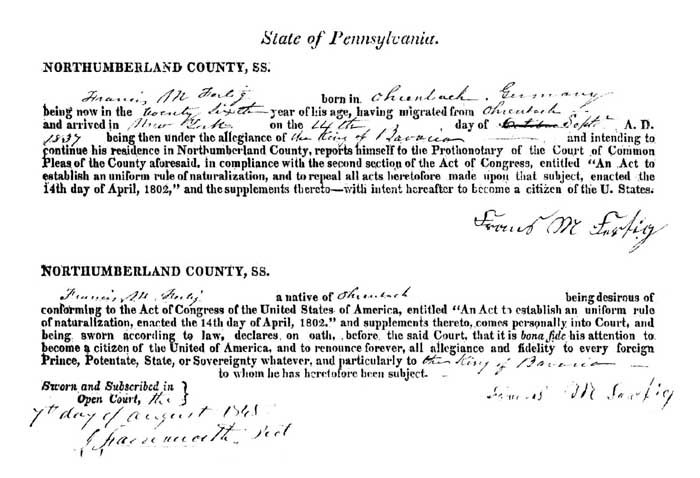 State of Pennsylvania.
NORTHUMBERLAND COUNTY, SS.
Francis M Fertig born in Ohrenbach, Germany
being now in the twenty sixth year of his age, having migrated from Ohrenbach
and arrived in New York on the 14th day of Septr A. D.
1837 being then under the allegiance of the King of Bavaria and intending to
continue his residence in Northumberland County, reports himself to the Prothonotary of the Court of Common
Pleas of the County aforesaid, in compliance with the second section of the Act of Congress, entitled "An Act to
establish an uniform rule of naturalization, and to repeal all acts heretofore made upon that subject, enacted the
14th day of April, 1802," and the supplements thereto—with intent hereafter to become a citizen of the U. States.
Frans M Fertig
NORTHUMBERLAND COUNTY, SS.
Francis M. Fertig a native of Ohrenbach being desirous of
conforming to the Act of Congress of the United States of America, entitled "An Act to establish an uniform rule
of naturalization, enacted the 14th day of April, 1802." and supplements thereto, comes personally into Court, and
being sworn according to law, declares on oath, before the said Court, that it is bona fide his attention to
become a citizen of the United of America, and to renounce forever, all allegiance and fidelity to every foreign
Prince, Potentate, State, or Sovereignty whatever, and particularly to the King of Bavaria
to whom he has heretofore been subject.
Sworn and Subscribed in
Open Court, the
7th day of August 1845
M Fertig